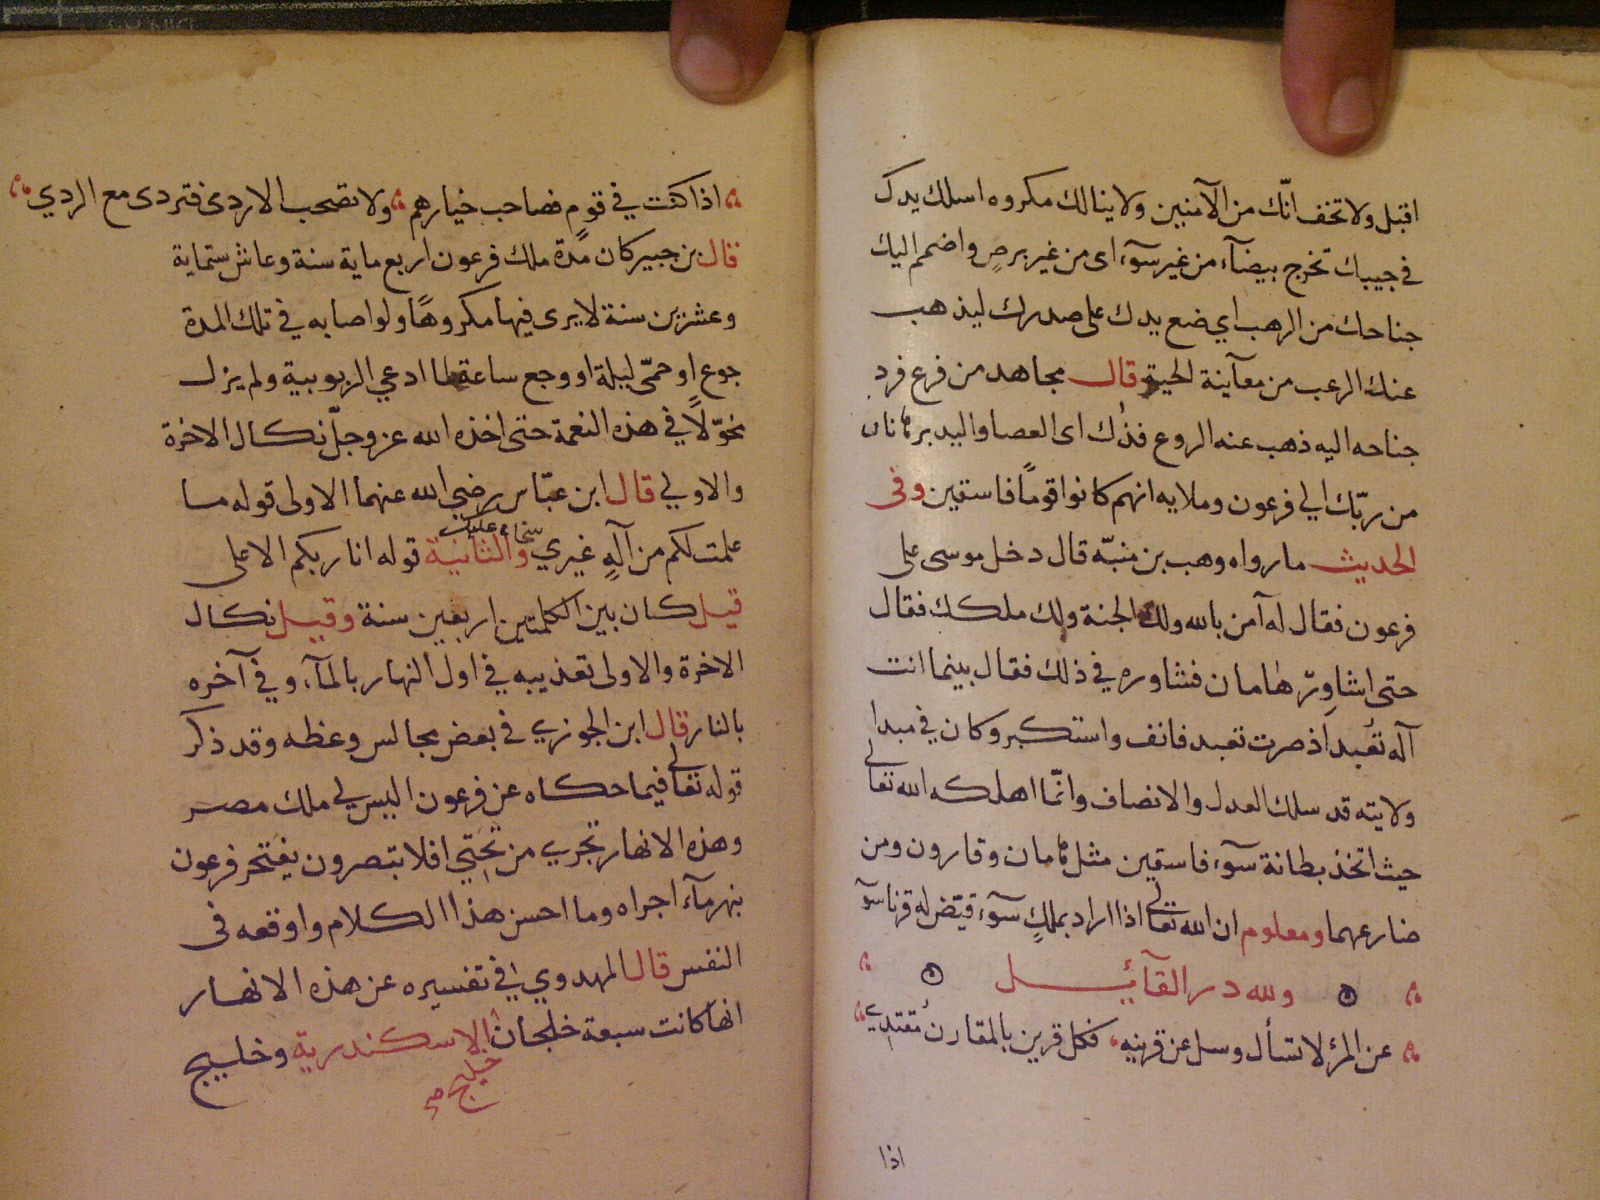 اقبل ولا تخف انّك من الآمنين ولا ينالك مكروه اسلك يدك
في جيبك تخرج بيضآء من غير سوٓء اى من غير برصٍ واضمم اليك
جناحك من الرهب اي ضع يدك على صدرك ليذهب
عنك الرعب من معآينة الحية وقال مجاهد من فرع فرد
جناحه اليه ذهب عنه الروع فذٰنك اى العصا واليد برهانان
من ربّك الي فرعون وملايه انهم كانوا قومًا فاسقين وفى
الحديث ما رواه وهب بن منبّه قال دخل موسى على
فرعون فقال له آمن بالله ولك الجنة ولك ملكك فقال
حتى اشاوِرَ هٰامان فشاوره في ذلك فقال بينما انت
آله تُعبد اذ صرت تعبد فانف واستكبر وكان في مبدا
ولايته قد سلك العدل والانصاف وانّما اهلكه الله تعالى
حيث اتخذ بطانة سوٓء فاسقين مثل هامان وقارون ومن
ضارعهما ومعلوم ان الله تعالى اذا اراد بملكٍ سوٓء قيّض له قرناسوٓ
ولله در القآئيل
عن المرٔ لا تسأل وسل عن قرينه فكل قرين بالمقارن مُقتدي
اذا
اذا كنت في قومٍ فصاحب خيارهم ولا تصحب الاردى فتردى مع الردي
قال بن جبير كان مدة ملك فرعون اربع ماية سنة وعاش ستماية
وعشرين سنة لا يرى فيها مكروهًا ولو اصابه في تلك المدة
جوعٍ او حمّى ليلة او وجع ساعة لما ادعي الربوبية ولم يزل
مخوّلًا في هذه النعمة حتى اخذه الله عز وجلّ نكال الاخرة
والاولي قال ابن عبّاس رضي الله عنهما الاولى قوله ما
علمت لكم من آلهٍ غيري والثانية قوله انا ربكم الاعلى
قيل كان بين الكلمتين اربعين سنة وقيل نكال
الاخرة والاولى تعذيبه في اول النهار بالمآء وفي آخره
بالنار قال ابن الجوزي في بعض مجالس وعظه وقد ذكر
قوله تعالى فيما حكاه عن فرعون اليس لي ملك مصر
وهذه الانهار تجري من تحتي افلا تبصرون يفتخر فرعون
بنهر مآء اجراه وما احسن هذا الكلام واوقعه فى
النفس قال المهدوي في تفسيره عن هذه الانهار
انها كانت سبعة خلجان الاسكندرية وخليج
خليج صح